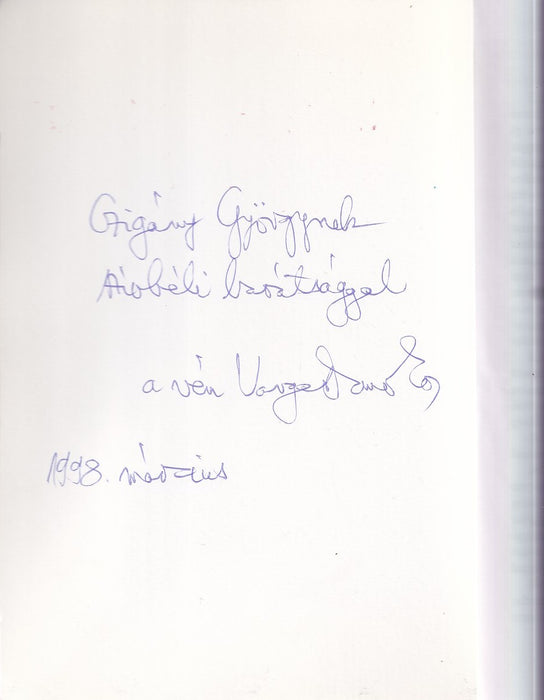 Czigány Györgynek
barátsággal
a vén Varga Domo
1998. március